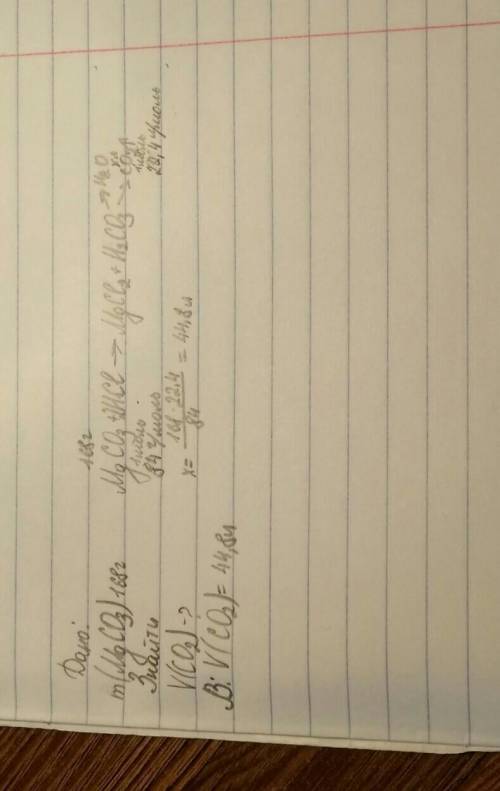 Дано:
m(MgCO3) 168г
Знайти
V(CO2) -?
168г
MgCO3 + 2HCl → MgCl2 + H2CO3 → H2O
→ CO2↑
1 моль
84 г/моль
xл
1 моль
22,4 л/моль
x = 168 · 22,4 / 84 = 44,8л
В: V(CO2) = 44,8л